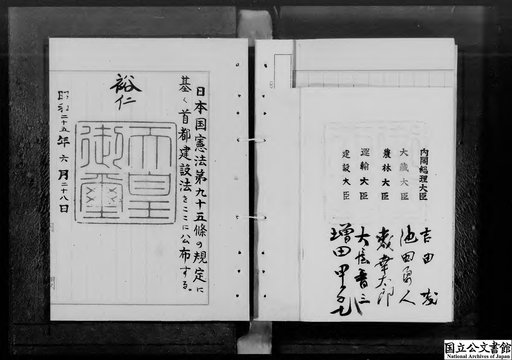 日本国憲法第九十五條の規定に
基く首都建設法をここに公布する。
裕仁
天皇
御璽
昭和二十五年六月二十八日
内閣総理大臣 吉田茂
大蔵大臣 池田勇人
農林大臣
運輸大臣 大屋晋三
建設大臣 増田甲子七
国立公文書館
National Archives of Japan